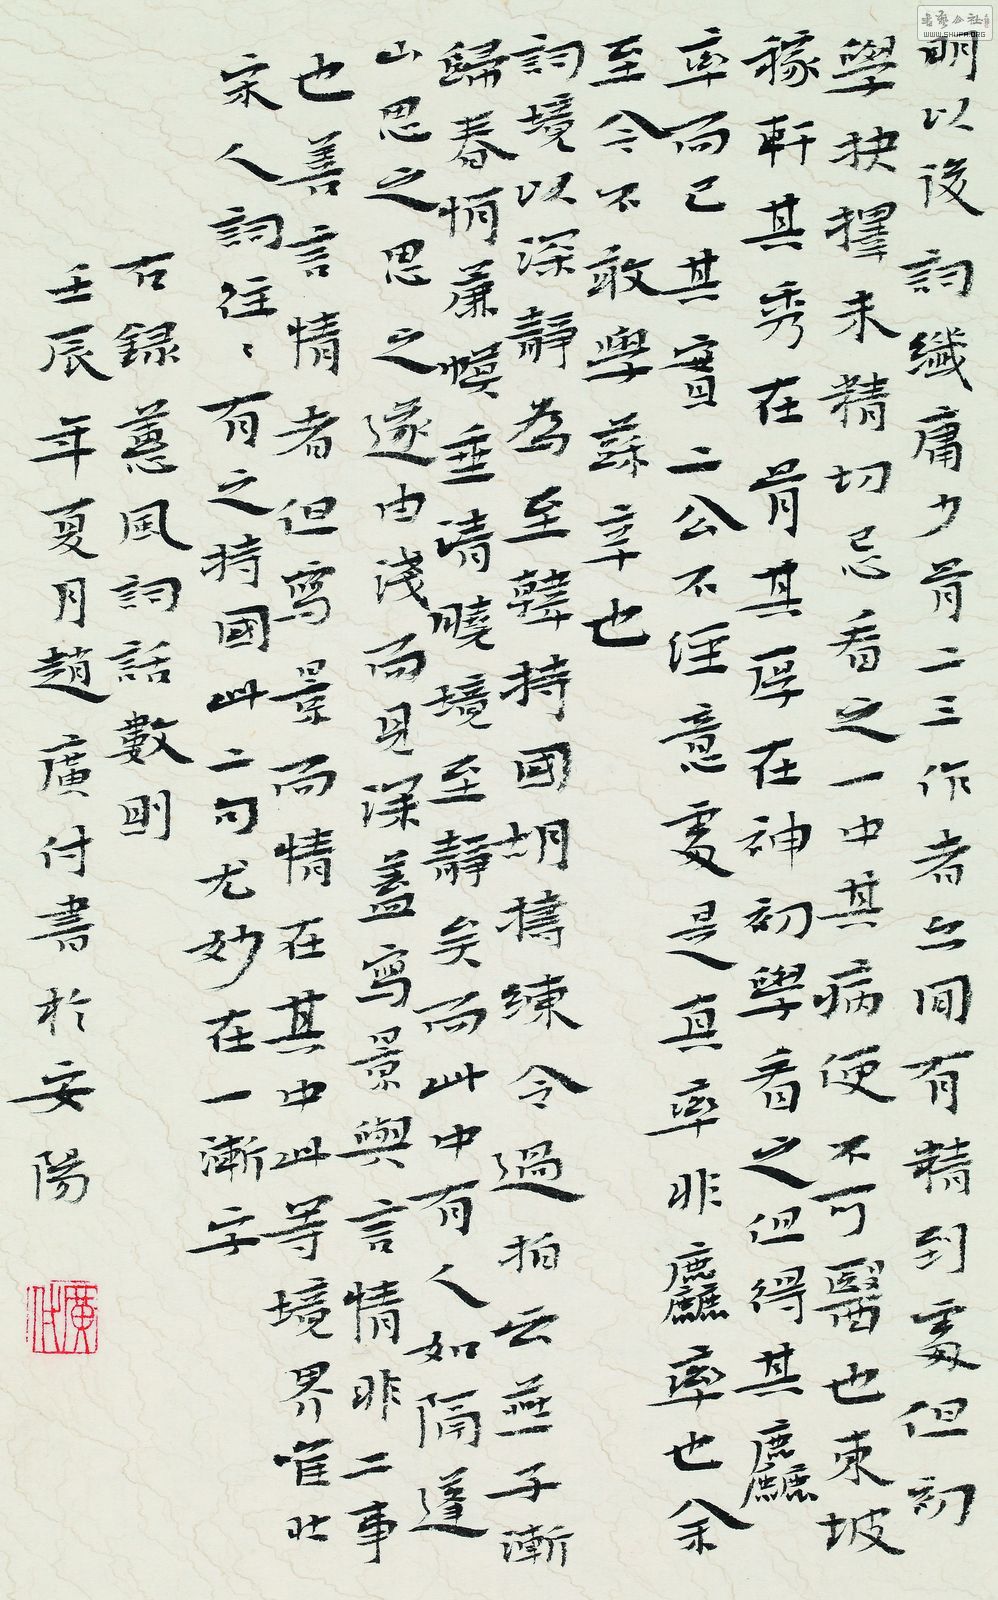 明以後詞纖庸少骨二三作者亦間有精到處但初
學抉擇未精切忌看之一中其病便不可醫也東坡
稼軒其秀在骨其厚在神初學看之但得其麤
率而已其實二公不經意處是真率非麤率也余
至今不敢學蘇辛也
詞境以深靜為至韓持國胡擣練令過拍云燕子漸
歸春悄簾幙垂清曉境至靜矣而此中有人如隔蓬
山思之思之遂由淺而見深蓋寫景與言情非二事
也善言情者但寫景而情在其中此等境界唯北
宋人詞往往有之持國此二句尤妙在一漸字
右録蕙風詞話數則
壬辰年夏月趙廣付書於安陽
書藝公社
WWW.SHUFA.ORG